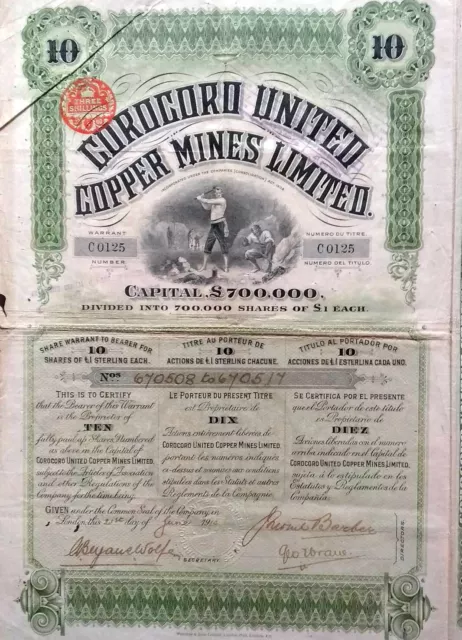 10 10
THREE
SHILLINGS
COROCORO UNITED
COPPER MINES LIMITED.
INCORPORATED UNDER THE COMPANIES (CONSOLIDATION) ACT 1908
WARRANT NUMERO DU TITRE
C0125 C0125
NUMBER. NUMERO DEL TITULO.
CAPITAL, £700,000,
DIVIDED INTO 700,000 SHARES OF £1 EACH.
SHARE WARRANT TO BEARER FOR TITRE AU PORTEUR DE TITULO AL PORTADOR POR
10 10 10
SHARES OF £1 STERLING EACH. ACTIONS DE £1 STERLING CHACUNE. ACCIONES DE £1 ESTERLINA CADA UNO.
Nos 670508 to 670517
THIS IS TO CERTIFY
that the Bearer of this Warrant
is the Proprietor of
TEN
fully paid up Shares Numbered
as above in the Capital of
COROCORO UNITED COPPER MINES, LIMITED.
subject to the Articles of Association
and other Regulations of the
Company for the time being.
LE PORTEUR DU PRESENT TITRE
est Propriétaire de
DIX
Actions entièrement libérées de
COROCORO UNITED COPPER MINES LIMITED
portant les numéros indiqués
ci-dessus et soumises aux conditions
stipulées dans les Statuts et autres
Règlements de la Compagnie.
SE CERTIFICA POR EL PRESENTE
que el Portador de este titulo
es Propietario de
DIEZ
Acciones liberadas con el numero
arriba indicado en el Capital de
COROCORO UNITED COPPER MINES LIMITED,
sujeto a lo estipulado en los
Estatutos y Reglamentos de la
Compañia.
GIVEN under the Common Seal of the Company in
London, this 21st day of June 19
SECRETARY.
DIRECTORS.